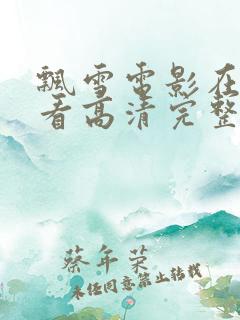 飘雪电影在
看高清完整
蔡年荣
未经同意禁止转载